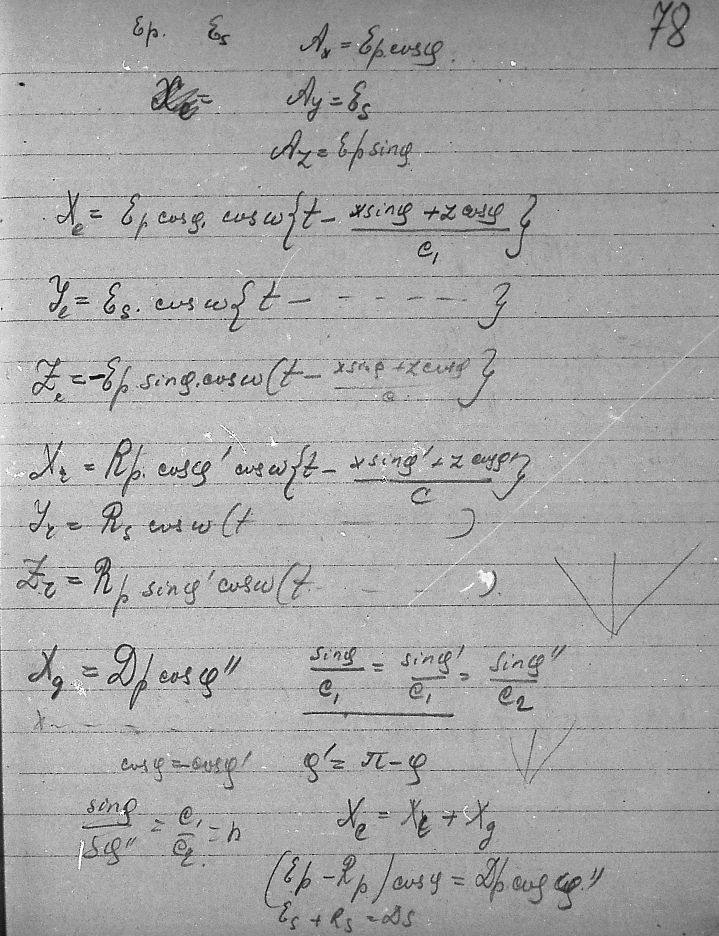 78
Ep. Es Ax = Ep cosφ.
Ay = Es
Az = Ep sinφ
Xe = Ep cosφ. cosω{t - (x sinφ + z cosφ)/c₁}
Ye = Es. cosω{t - - - - - - }
Ze = -Ep sinφ. cosω(t - (x sinφ + z cosφ)/c}
Xr = Rp. cosφ' cosω{t - (x sinφ' + z cosφ')/c}
Yr = Rs cosω(t - )
Zr = Rp sinφ' cosω(t - - ).
Xg = Dp cosφ'' sinφ/c₁ = sinφ'/c₁ = sinφ''/c₂
x - - - -
cosφ = -cosφ' φ' = π - φ
sinφ/sinφ'' = c₁/c₂ = n Xe = Xr + Xg
(Ep - Rp) cosφ = Dp cosφ''
Es + Rs = Ds